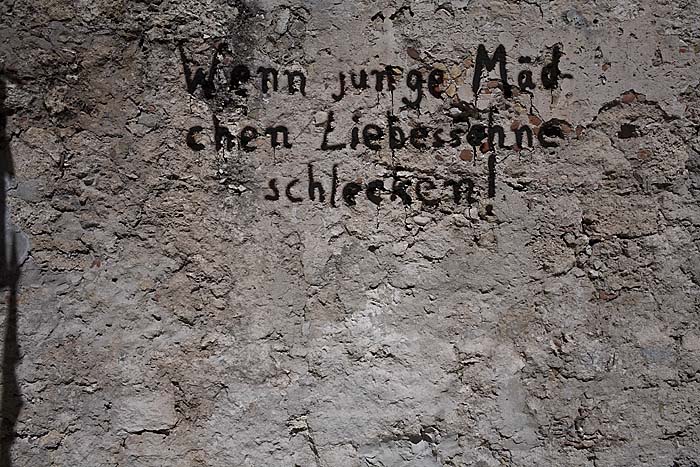 Wenn junge Mäd-
chen Liebessehne
schlecken!